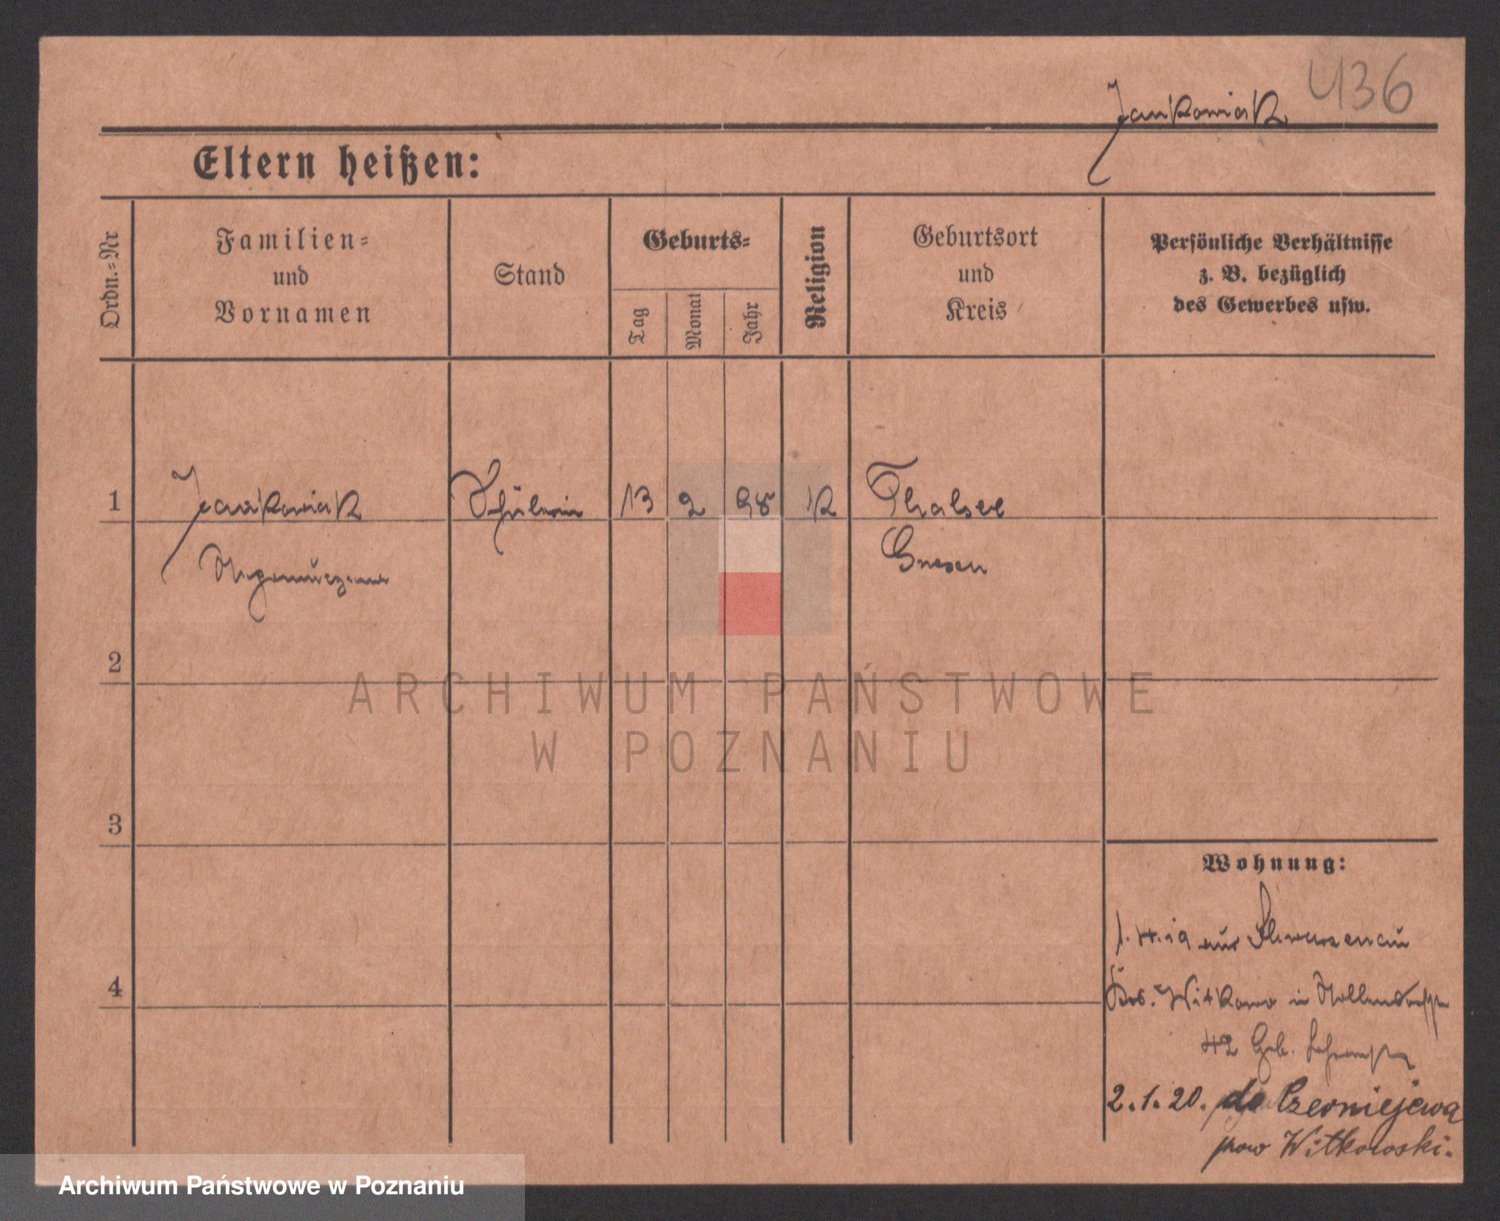 436
Jankowiak
Eltern heißen:
Ordn.-Nr
Familien-
und
Vornamen
Stand
Geburts-
Tag
Monat
Jahr
Religion
Geburtsort
und
Kreis
Persönliche Verhältnisse
z. B. bezüglich
des Gewerbes usw.
1
Jankowiak Schülerin 13 2 98 K Thalsee
Gnesen
2
ARCHIWUM PAŃSTWOWE
W POZNANIU
3
Wohnung:
1.4.19 aus Schwarzenau
Witkowo in
42 Geb.
4
2.1.20. do Czerniejewa
pow Witkowski.
Archiwum Państwowe w Poznaniu